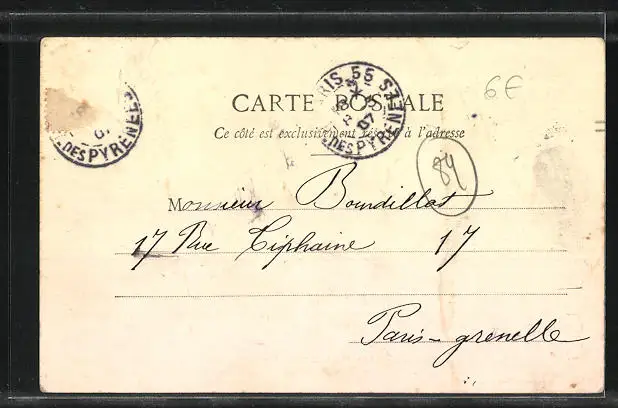 6E
PARIS 55
CARTE POSTALE
Ce côté est exclusivement réservé à l'adresse
07
R. DES PYRENEES
07
R. DES PYRENEES
84
Monsieur Bourdillat
17 Rue Tiphaine 17
Paris-grenelle